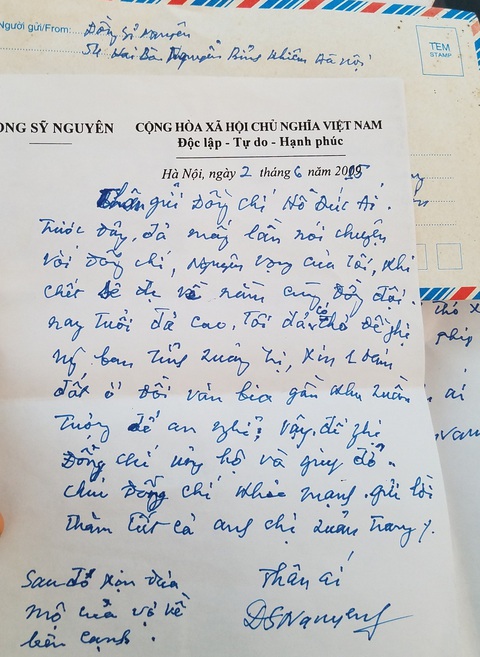 Người gửi/From: Đồng Sĩ Nguyên
54 Nguyễn Bỉnh Khiêm Hà Nội
TEM
STAMP
ONG SỸ NGUYÊN
CỘNG HÒA XÃ HỘI CHỦ NGHĨA VIỆT NAM
Độc lập - Tự do - Hạnh phúc
Hà Nội, ngày 2 tháng 6 năm 2015
Thân gửi Đồng chí Hồ Đức Ái.
Trước đây, đã mấy lần nói chuyện
với đồng chí, nguyện vọng của tôi, khi
chết sẽ về nằm cùng đồng đội.
nay tuổi đã cao, tôi đã có thơ đề nghị
Uỷ ban Tỉnh Quảng Trị, xin 1 đám
đất ở đồi văn bia gần khu Quân
tượng để an nghỉ. Vậy, đề nghị
Đồng chí ủng hộ và giúp đỡ.
chúc Đồng chí khỏe mạnh. gửi lời
thăm tất cả anh chị Quân trang /.
Thân ái
DSNguyen
Sau đó xin đưa
mộ của vợ về
bên cạnh.